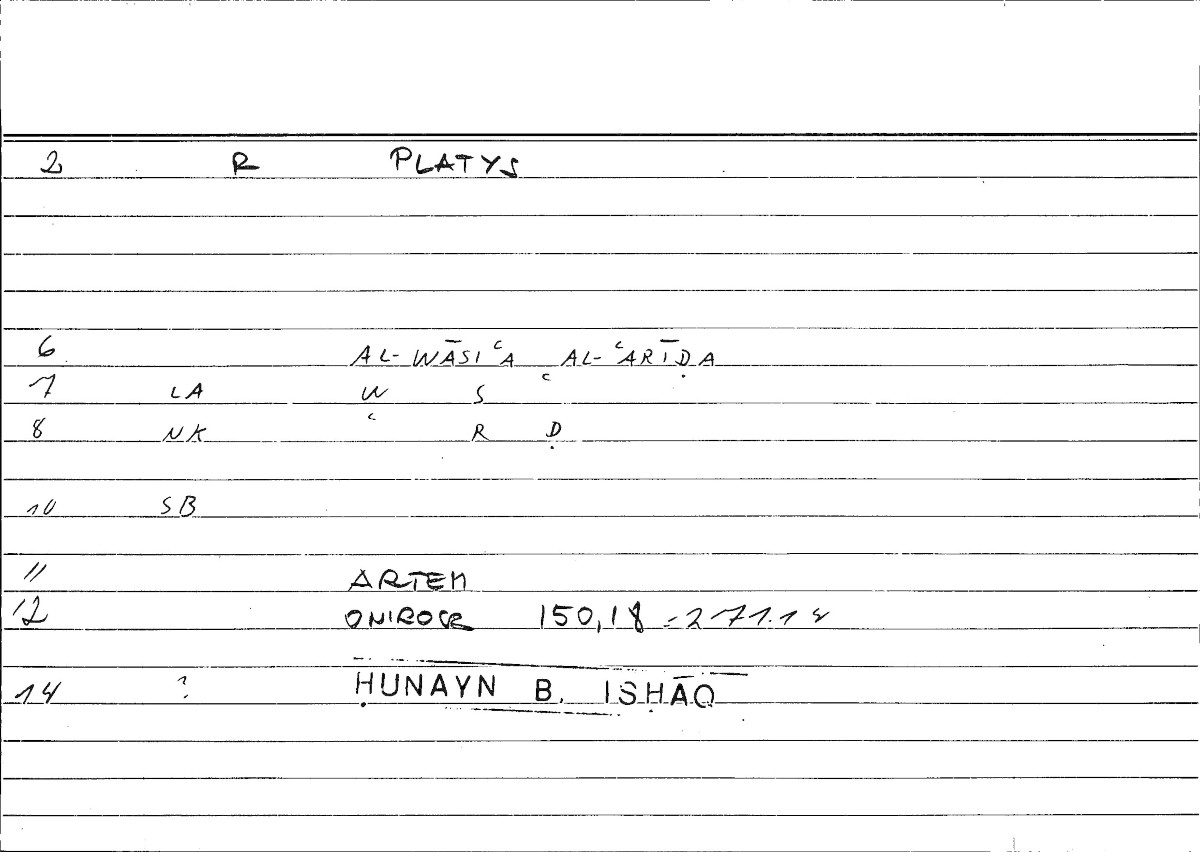 2 R PLATYS
6 AL-WĀSIʿA AL-ʿARĪḌA
7 LA W S ʿ
8 NK ʿ R Ḍ
10 SB
11 ARTEM
12 ONIROCR 150,18 = 271.18
14 ? ḤUNAYN B. ISḤĀQ